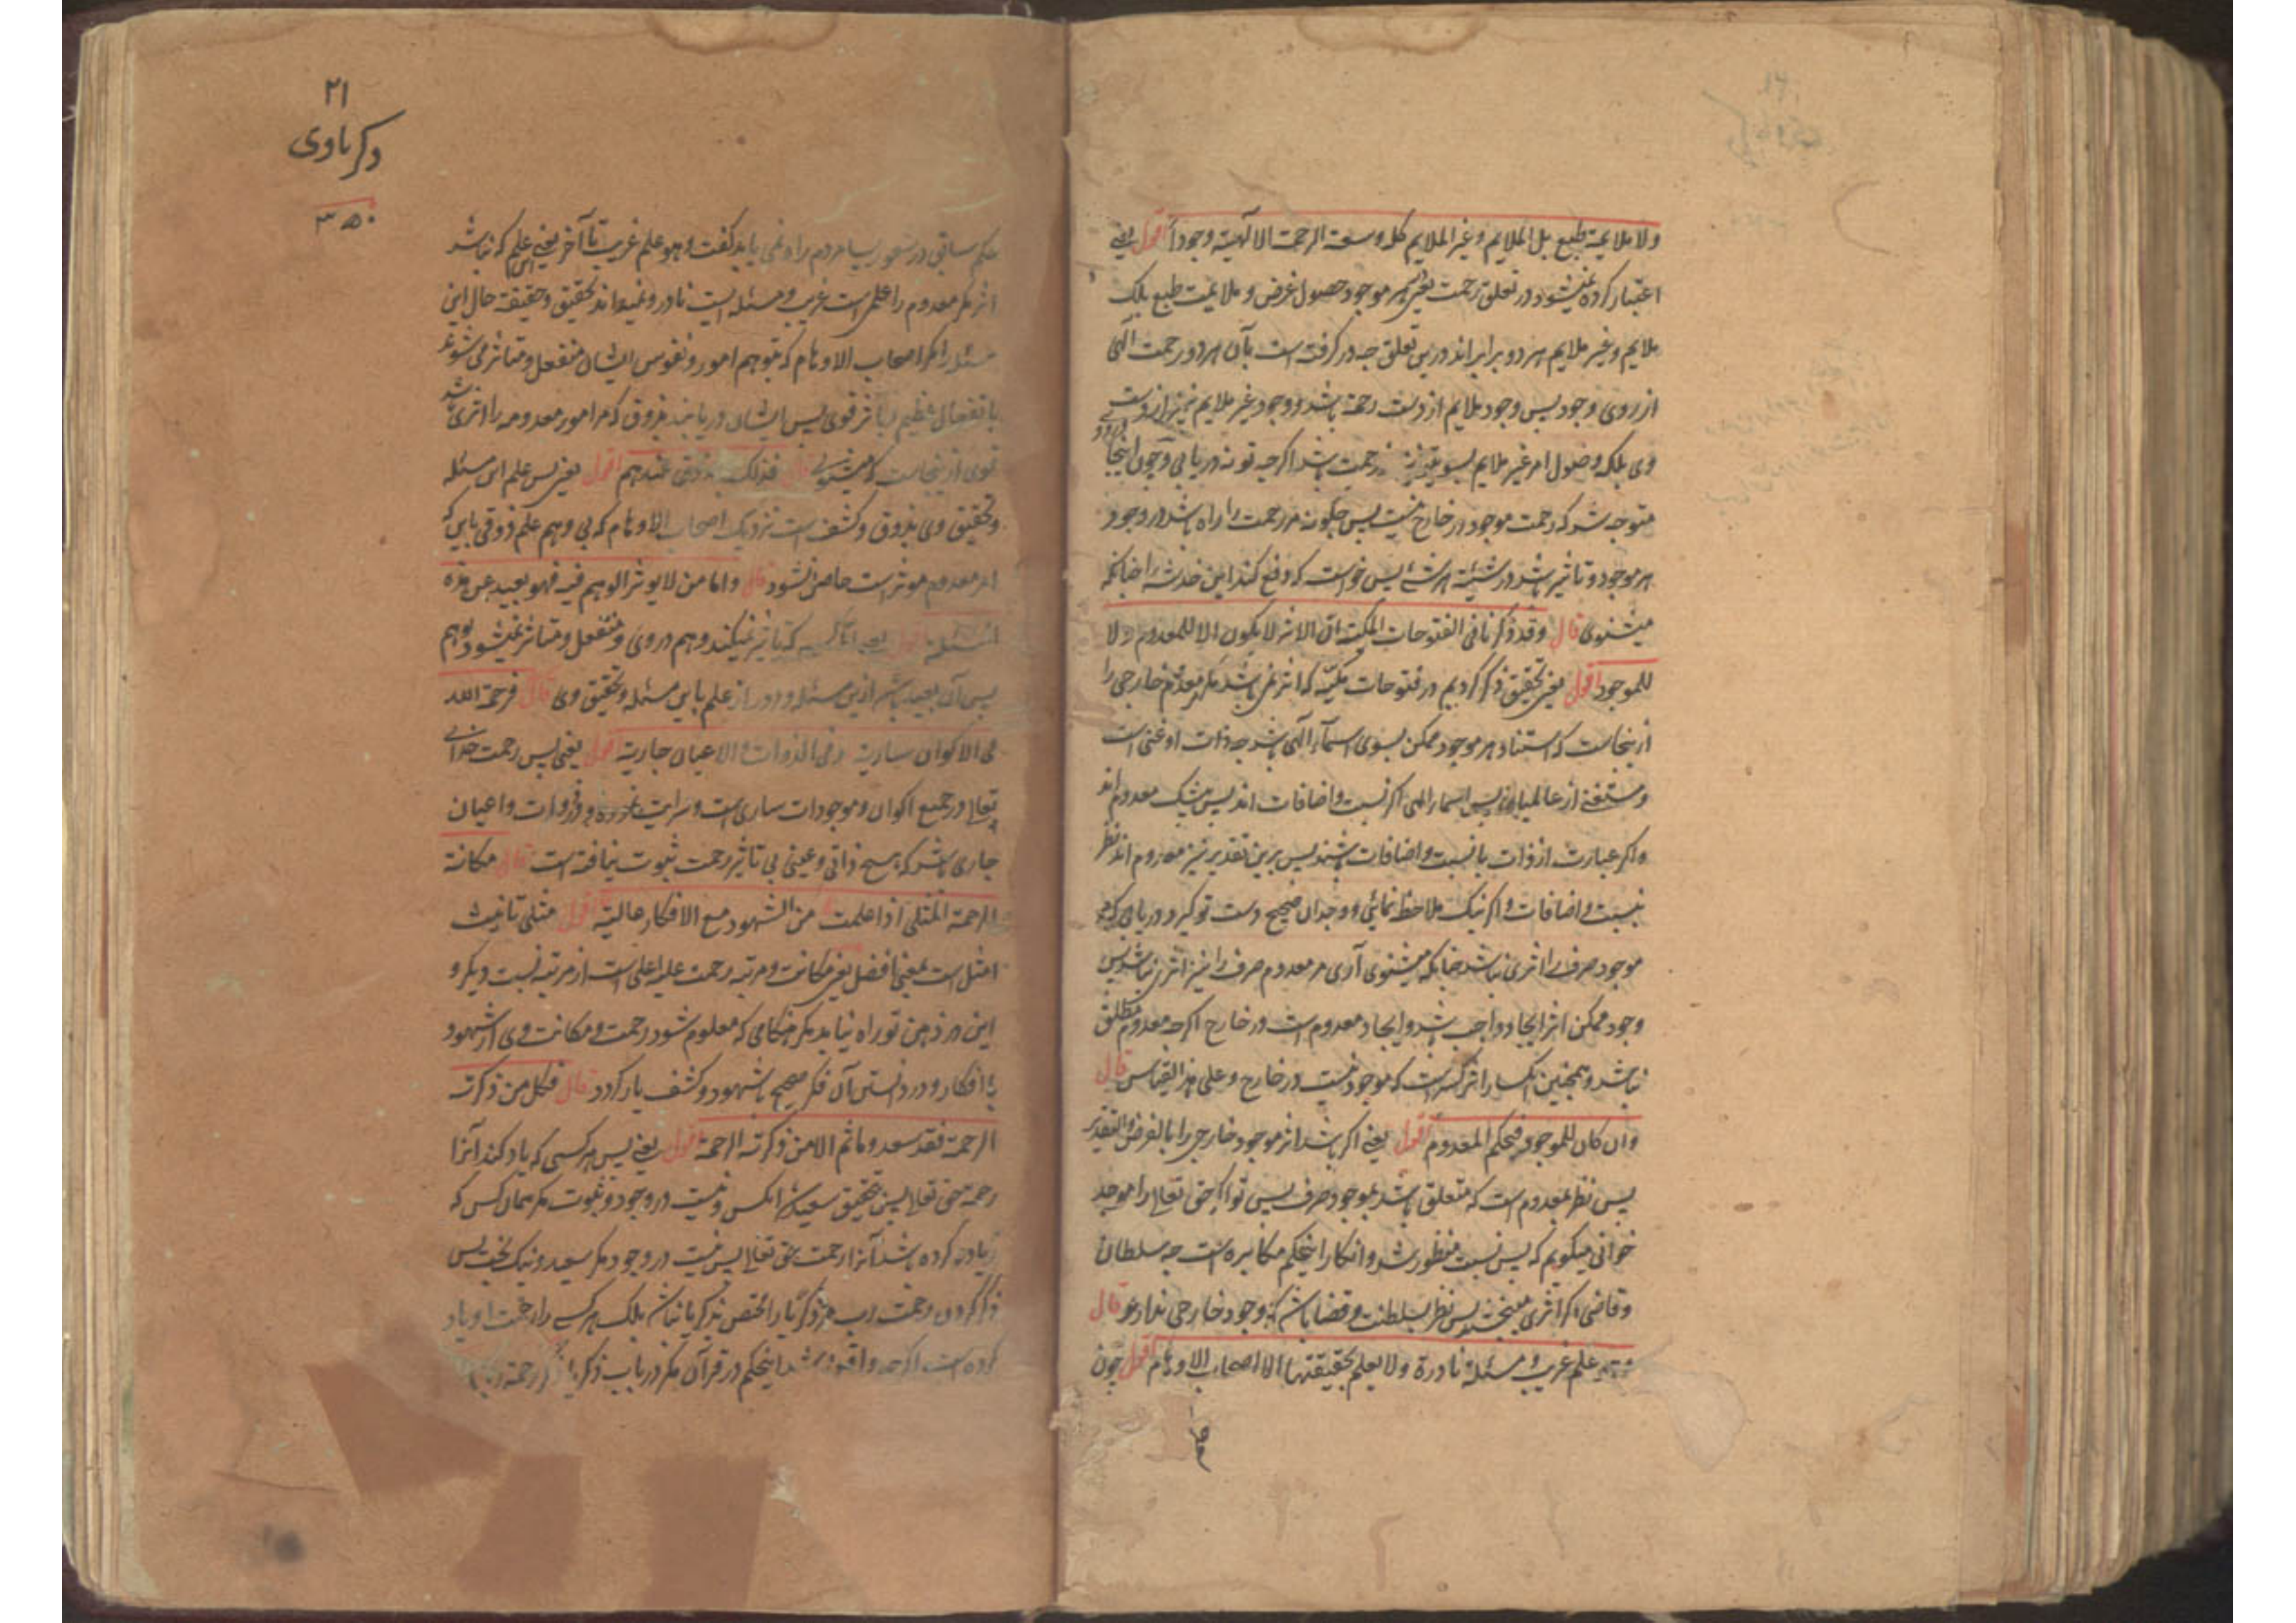 ولا ملایمة طبع بل الملایم و غیر الملایم کل وسعته الرحمة الالهیة وجوداً اقول یعنی
اعتبار کرده نمیشود در تعلق رحمت بهر موجود حصول غرض و ملایمت طبع بلک
ملایم و غیر ملایم هر دو برابر اند درین تعلق چه در گرفته است بآن هر دو رحمت الهی
از روی وجود پس وجود ملایم از دست رحمت باشد و وجود غیر ملایم نیز از دست
وی بلک وصول امر غیر ملایم بسوی تو نیز رحمت باشد اگرچه تو نه دریابی و چون اینجا
متوجه شد که رحمت موجود در خارج نیست پس چگونه مر رحمت را راه باشد در وجود
هر موجود و تاثیر باشد در شیئیة هر شئ پس خواست که دفع کند این خدشه را چنانکه
میشنوی قال وقد ذکرنا فی الفتوحات المکیة ان الاثر لا یکون الا للمعدوم لا
للموجود اقول یعنی بتحقیق ذکر کردیم در فتوحات مکیه که اثر نمی باشد مگر معدوم خارجی را
ازینجاست که استناد هر موجود ممکن بسوی اسماء الهی باشد چه ذات او غنی است
و مستغنی از عالمیان پس اسماء الهی اگر نسبت و اضافات اند پس بیشک معدوم اند
و اگر عبارت از ذات با نسبت و اضافات باشند پس برین تقدیر نیز معدوم اند نظر
بنسبت و اضافات و اگر نیک ملاحظه نمائی و وجدان صحیح دست تو گیرد دریابی که مر
موجود صرف را اثری نباشد چنانکه میشنوی آری مر معدوم صرف را نیز اثری نباشد پس
وجود ممکن اثر ایجاد واجب باشد و ایجاد معدوم است در خارج اگرچه معدوم مطلق
نباشد و همچنین انکسار اثر کسر است که موجود نیست در خارج و علی هذا القیاس قال
وان کان للموجود فبحکم المعدوم اقول یعنی اگر باشد اثر موجود خارجی را بالفرض والتقدیر
پس نظر بمعدوم است که متعلق باشد بموجود صرف پس تو اگر حق تعالی را موجد
خوانی میگویم که پس نسبت منظور شد و انکار اینحکم مکابره است چه سلطان
و قاضی اگر اثری می بخشد پس نظر بسلطنت و قضا باشد که وجود خارجی ندارد قال
وهو علم غریب و مسئلة نادرة ولا یعلم بحقیقتها الا اصحاب الاوهام اقول چون
۲۱
ذکریاوی
۳۵۰
حکم سابق در شعور بسیار مردم راه نمی یابد گفت و هو علم غریب تا آخر یعنی علم که نباشد
اثر مگر معدوم را علمی است غریب و مسئله ایست نادر و نمیداند بتحقیق و حقیقة حال این
مسئله را مگر اصحاب الاوهام که بتوهم امور و نفوس ایشان منفعل و متاثر می شوند
با نفعال عظیم و تاثر قوی پس ایشان دریابند بذوق که مر امور معدومه را اثری باشد
قوی ازینجاست که میشنوی قال فذلک بالذوق عندهم اقول یعنی پس علم این مسئله
و تحقیق وی بذوق و کشف است نزدیک اصحاب الاوهام که بی وهم علم ذوقی باین که
امر معدوم موثر است حاصل نشود قال واما من لا یوثر الوهم فیه فهو بعید عن هذه
المسئلة اقول یعنی اما کسیکه تاثیر نمیکند وهم در وی و منفعل و متاثر نمیشود بوهم
پس آن بعید باشد ازین مسئله و دور از علم باین مسئله و تحقیق وی قال فرحمة الله
فی الاکوان ساریة وفی الذوات والاعیان جاریة اقول یعنی پس رحمت خدای
تعالی در جمیع اکوان و موجودات ساری است و سرایت نموده و در ذوات و اعیان
جاری باشد که هیچ ذاتی و عینی بی تاثیر رحمت ثبوت نیافته است قال مکانة
الرحمة المثلی اذا علمت من الشهود مع الافکار عالیة اقول مثلی تانیث
امثل است بمعنی افضل یعنی مکانت و مرتبه رحمت علیه اعلی است از مرتبه نسبت دیگر و
این در ذهن تو راه نیابد مگر هنگامی که معلوم شود رحمت و مکانت وی از شهود
با افکار و در دانستن آن فکر صحیح با شهود و کشف یار گردد قال فکل من ذکرته
الرحمة فقد سعد وما ثم الا من ذکرته الرحمة اقول یعنی پس هر کسی که یاد کند آنرا
رحمت حق تعالی پس بتحقیق سعید شد آنکس و نیست در وجود و ثبوت مگر همان کس که
یاد کرده باشد آنرا رحمت حق تعالی پس نیست در وجود مگر سعید و نیک بخت پس
ذکر کردن رحمت رب مر ذکریا را مختص بذکریا نباشد بلک هر کسی را رحمت او یاد
کرده است اگرچه واقع شد اینحکم در قرآن مگر در باب ذکریا